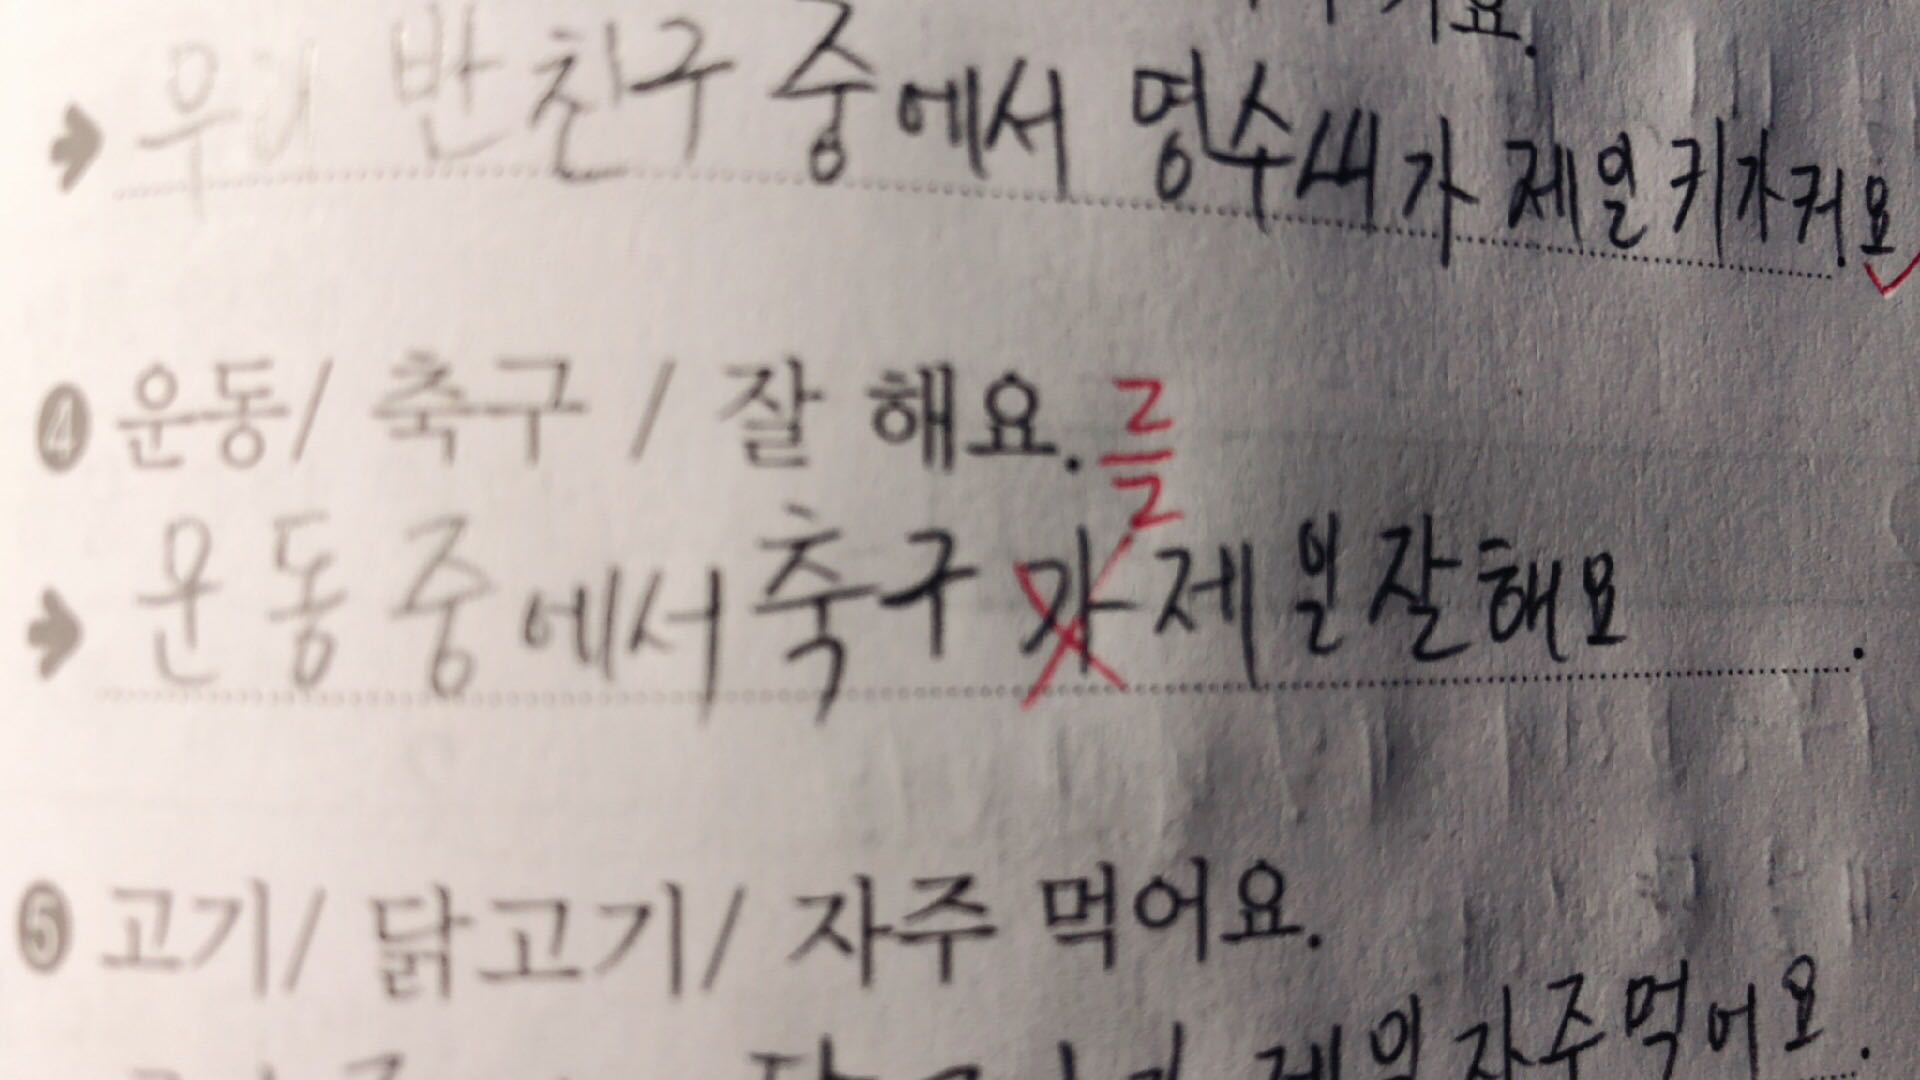 거요.
우리 반 친구 중에서 영수씨가 제일 키가커요.
4 운동/ 축구 / 잘 해요.
를
운동 중에서 축구 가 제일 잘해요.
5 고기/ 닭고기/ 자주 먹어요.
제일 자주먹어요.